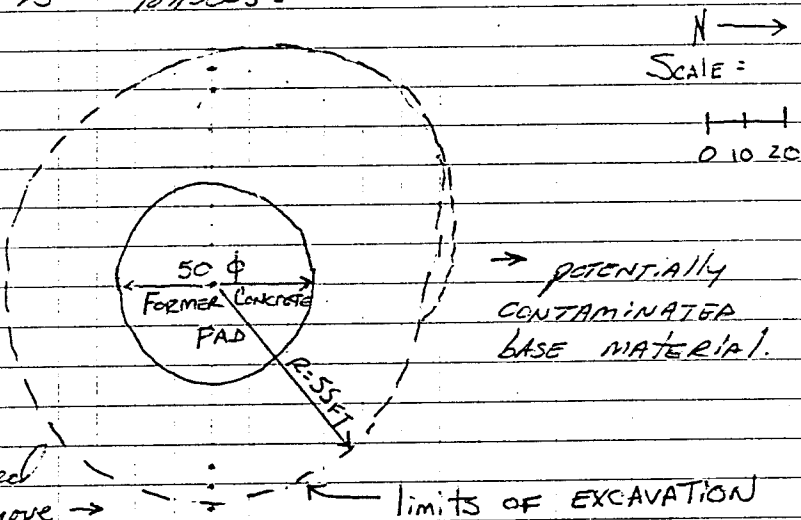 N →
SCALE =
0 10 20
50 ϕ
FORMER CONCRETE
PAD
R=55FT
→ POTENTIALLY
CONTAMINATED
BASE MATERIAL.
limits OF EXCAVATION